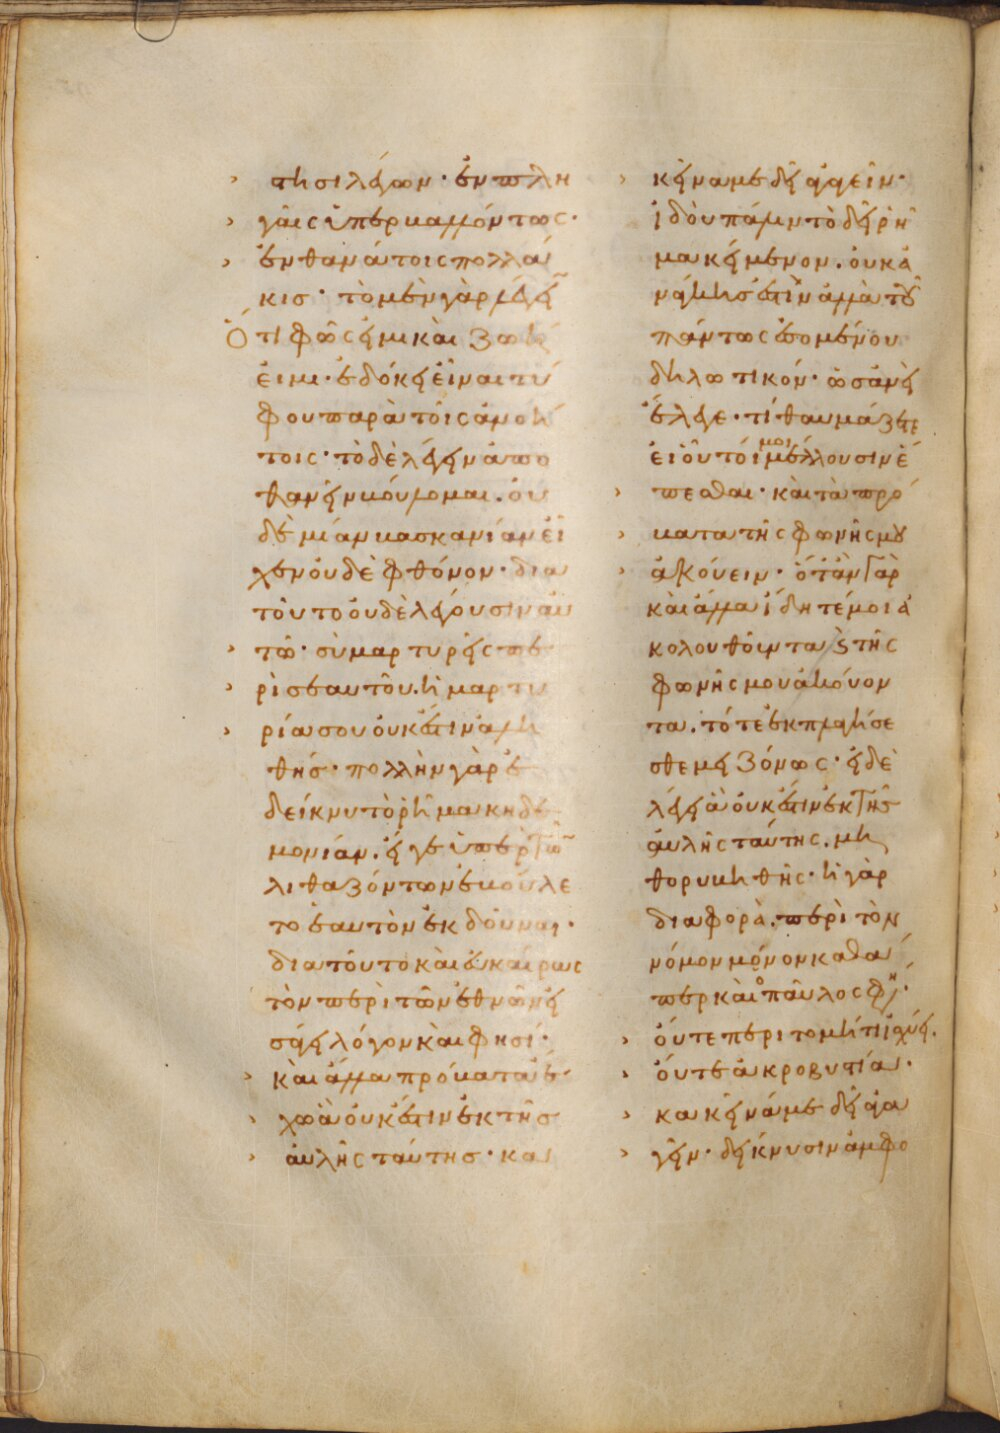 τησι λέγων· ἐν πλη
γαῖς ὑπερβαλλόντως·
ἐν θανάτοις πολλά
κισ· τὸ μὲν γὰρ λέγειν
Ὅτι φῶς εἰμι καὶ ζωή
εἰμι· ἐδόκει εἶναι τύ
φου παρὰ τοῖς ἀνοή
τοις· τὸ δὲ λέγειν ἀπο
θανεῖν βούλομαι. οὐ
δεμίαν βασκανίαν εἶ
χεν οὐδὲ φθόνον· δια
τοῦτο οὐδὲ λέγουσιν αὐ
τῶ· σὺ μαρτυρεῖς πε
ρὶ σεαυτοῦ. ἡ μαρτυ
ρία σου οὐκ ἔστιν ἀλη
θής· πολλὴν γὰρ ἐ
δείκνυ τὸ ῥῆμα κηδε
μονίαν. εἴγε ὑπὲρ τῶν
λιθαζόντων ἐβούλε
το ἑαυτὸν ἐκδοῦναι·
δια τοῦτο καὶ εὐκαίρως
τὸν περὶ τῶν ἐθνῶν εἰ
σάγει λόγον καὶ φησί·
καὶ ἄλλα πρόβατα ἔ
χω ἃ οὐκ ἔστιν ἐκ τῆσ
αὐλῆς ταύτησ· κα
κεῖνα με δεῖ ἀγαγεῖν·
ἰδοὺ πάλιν τὸ δεῖ ῥῆ
μα κείμενον. οὐκ ἀ
νάγκησ ἐστὶν ἀλλὰ τοῦ
πάντως ἐσομένου
δηλωτικόν· ὡσανεὶ
ἔλεγε· τί θαυμάζετε
εἰ οὗτοί μοι μέλλουσιν ἕ
πεσθαι· καὶ τὰ πρό
βατα τῆς φωνῆς μου
ἀκούειν· ὅταν γὰρ
καὶ ἄλλα ἴδητέ μοι ἀ
κολουθοῦντα καὶ τῆς
φωνῆς μου ἀκούον
τα. τότε ἐκπλαγήσε
σθε μειζόνως· εἰ δὲ
λέγει ἃ οὐκ ἔστιν ἐκ τῆσ
αὐλῆς ταύτης. μὴ
θορυβηθῆς· ἡ γὰρ
διαφορὰ. περὶ τὸν
νόμον μόνον καθά
περ καὶ ὁ παῦλος φη·
οὔτε περιτομή τι ἰσχύει.
οὔτε ἀκροβυστία·
κακεῖνά με δεῖ ἀγα
γεῖν· δείκνυσιν ἀμφο